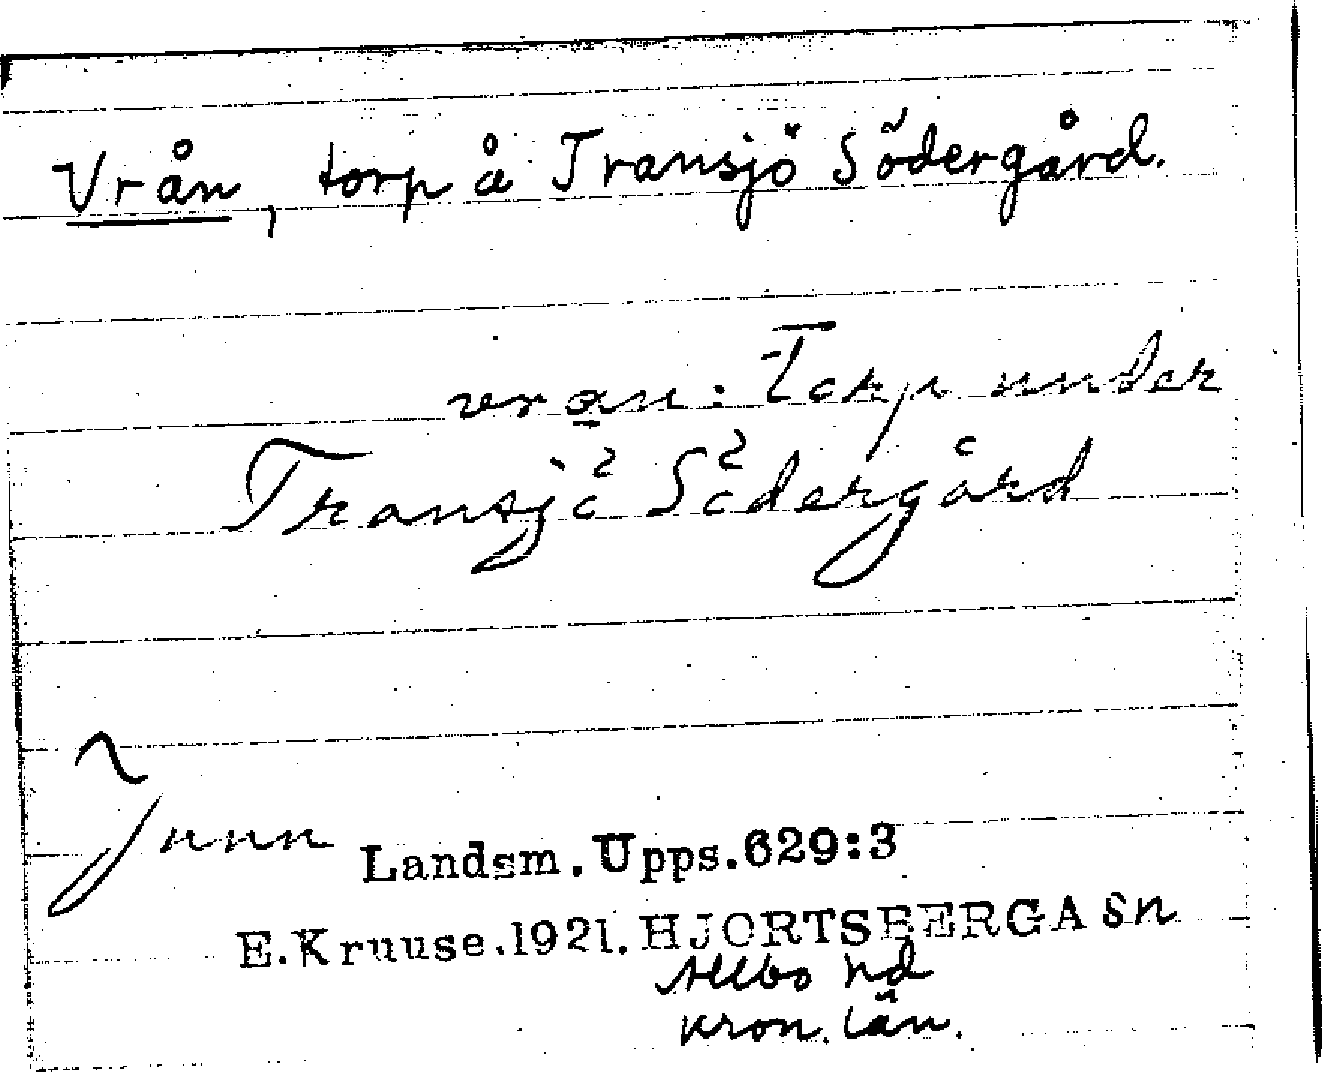 Vrån, torp å Transjö Södergård.
vrån: Torp under
Transjö Södergård
Landsm. Upps. 629:3
E. Kruuse. 1921. HJORTSBERGA sn
Allbo hd
Kron. län.